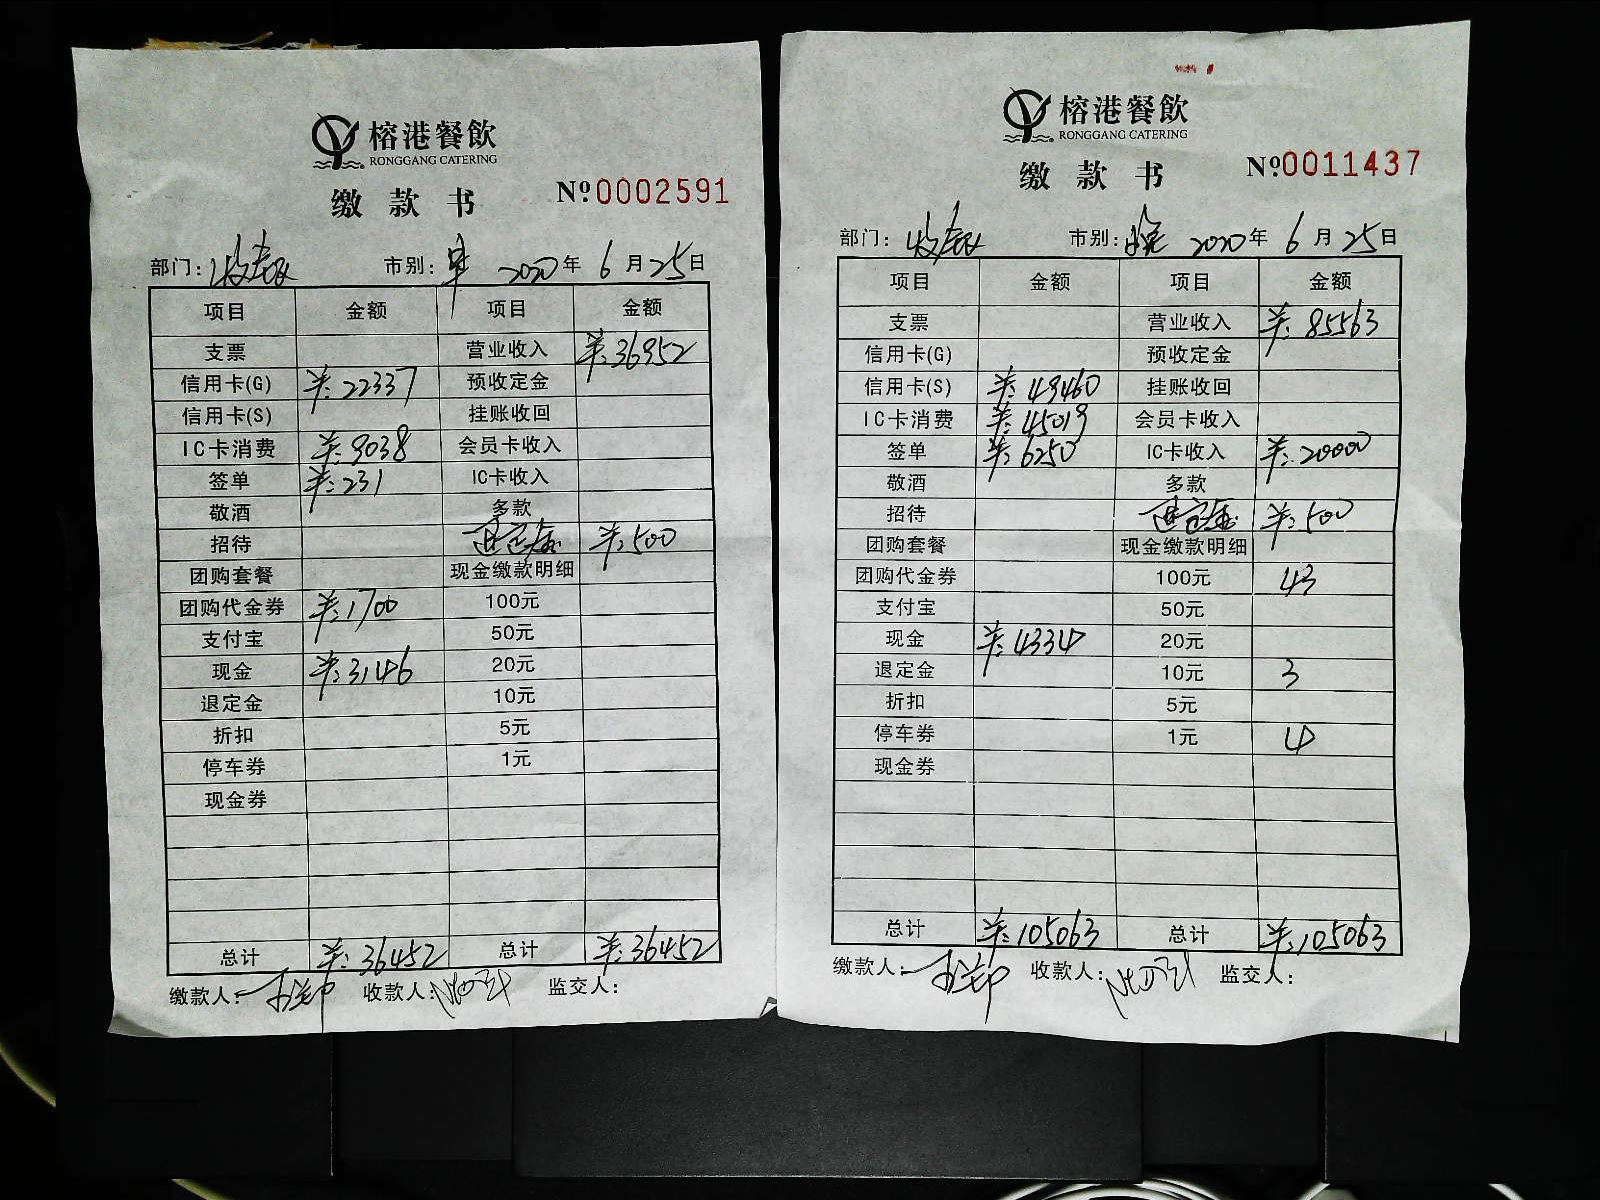 榕港餐飲
RONGGANG CATERING
缴款书 №0002591
部门: 收款 市别: 早 2020年6月25日
项目 金额 项目 金额
支票 营业收入 ¥:36952
信用卡(G) ¥:22337 预收定金
信用卡(S) 挂账收回
IC卡消费 ¥:9038 会员卡收入
签单 ¥:231 IC卡收入
敬酒 多款
招待 退定金 ¥:500
团购套餐 现金缴款明细
团购代金券 ¥:1700 100元
支付宝 50元
现金 ¥:3146 20元
退定金 10元
折扣 5元
停车券 1元
现金券
总计 ¥:36452 总计 ¥:36452
缴款人: 收款人: 监交人:
榕港餐飲
RONGGANG CATERING
缴款书 №0011437
部门: 收款 市别: 晚 2020年6月25日
项目 金额 项目 金额
支票 营业收入 ¥:85563
信用卡(G) 预收定金
信用卡(S) ¥:49460 挂账收回
IC卡消费 ¥:45019 会员卡收入
签单 ¥:6250 IC卡收入 ¥:20000
敬酒 多款
招待 退定金 ¥:500
团购套餐 现金缴款明细
团购代金券 100元 43
支付宝 50元
现金 ¥:4334 20元
退定金 10元 3
折扣 5元
停车券 1元 4
现金券
总计 ¥:105063 总计 ¥:105063
缴款人: 收款人: 监交人: